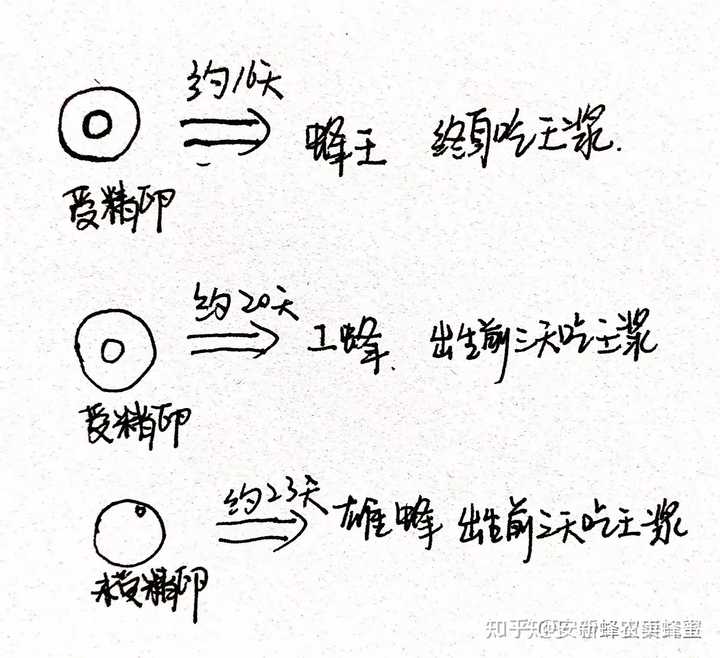 约16天
蜂王 终身吃王浆.
受精卵
约20天
工蜂. 出生前三天吃王浆
受精卵
约23天
雄蜂 出生前三天吃王浆
未受精卵
知乎 @安新蜂农蜂蜜